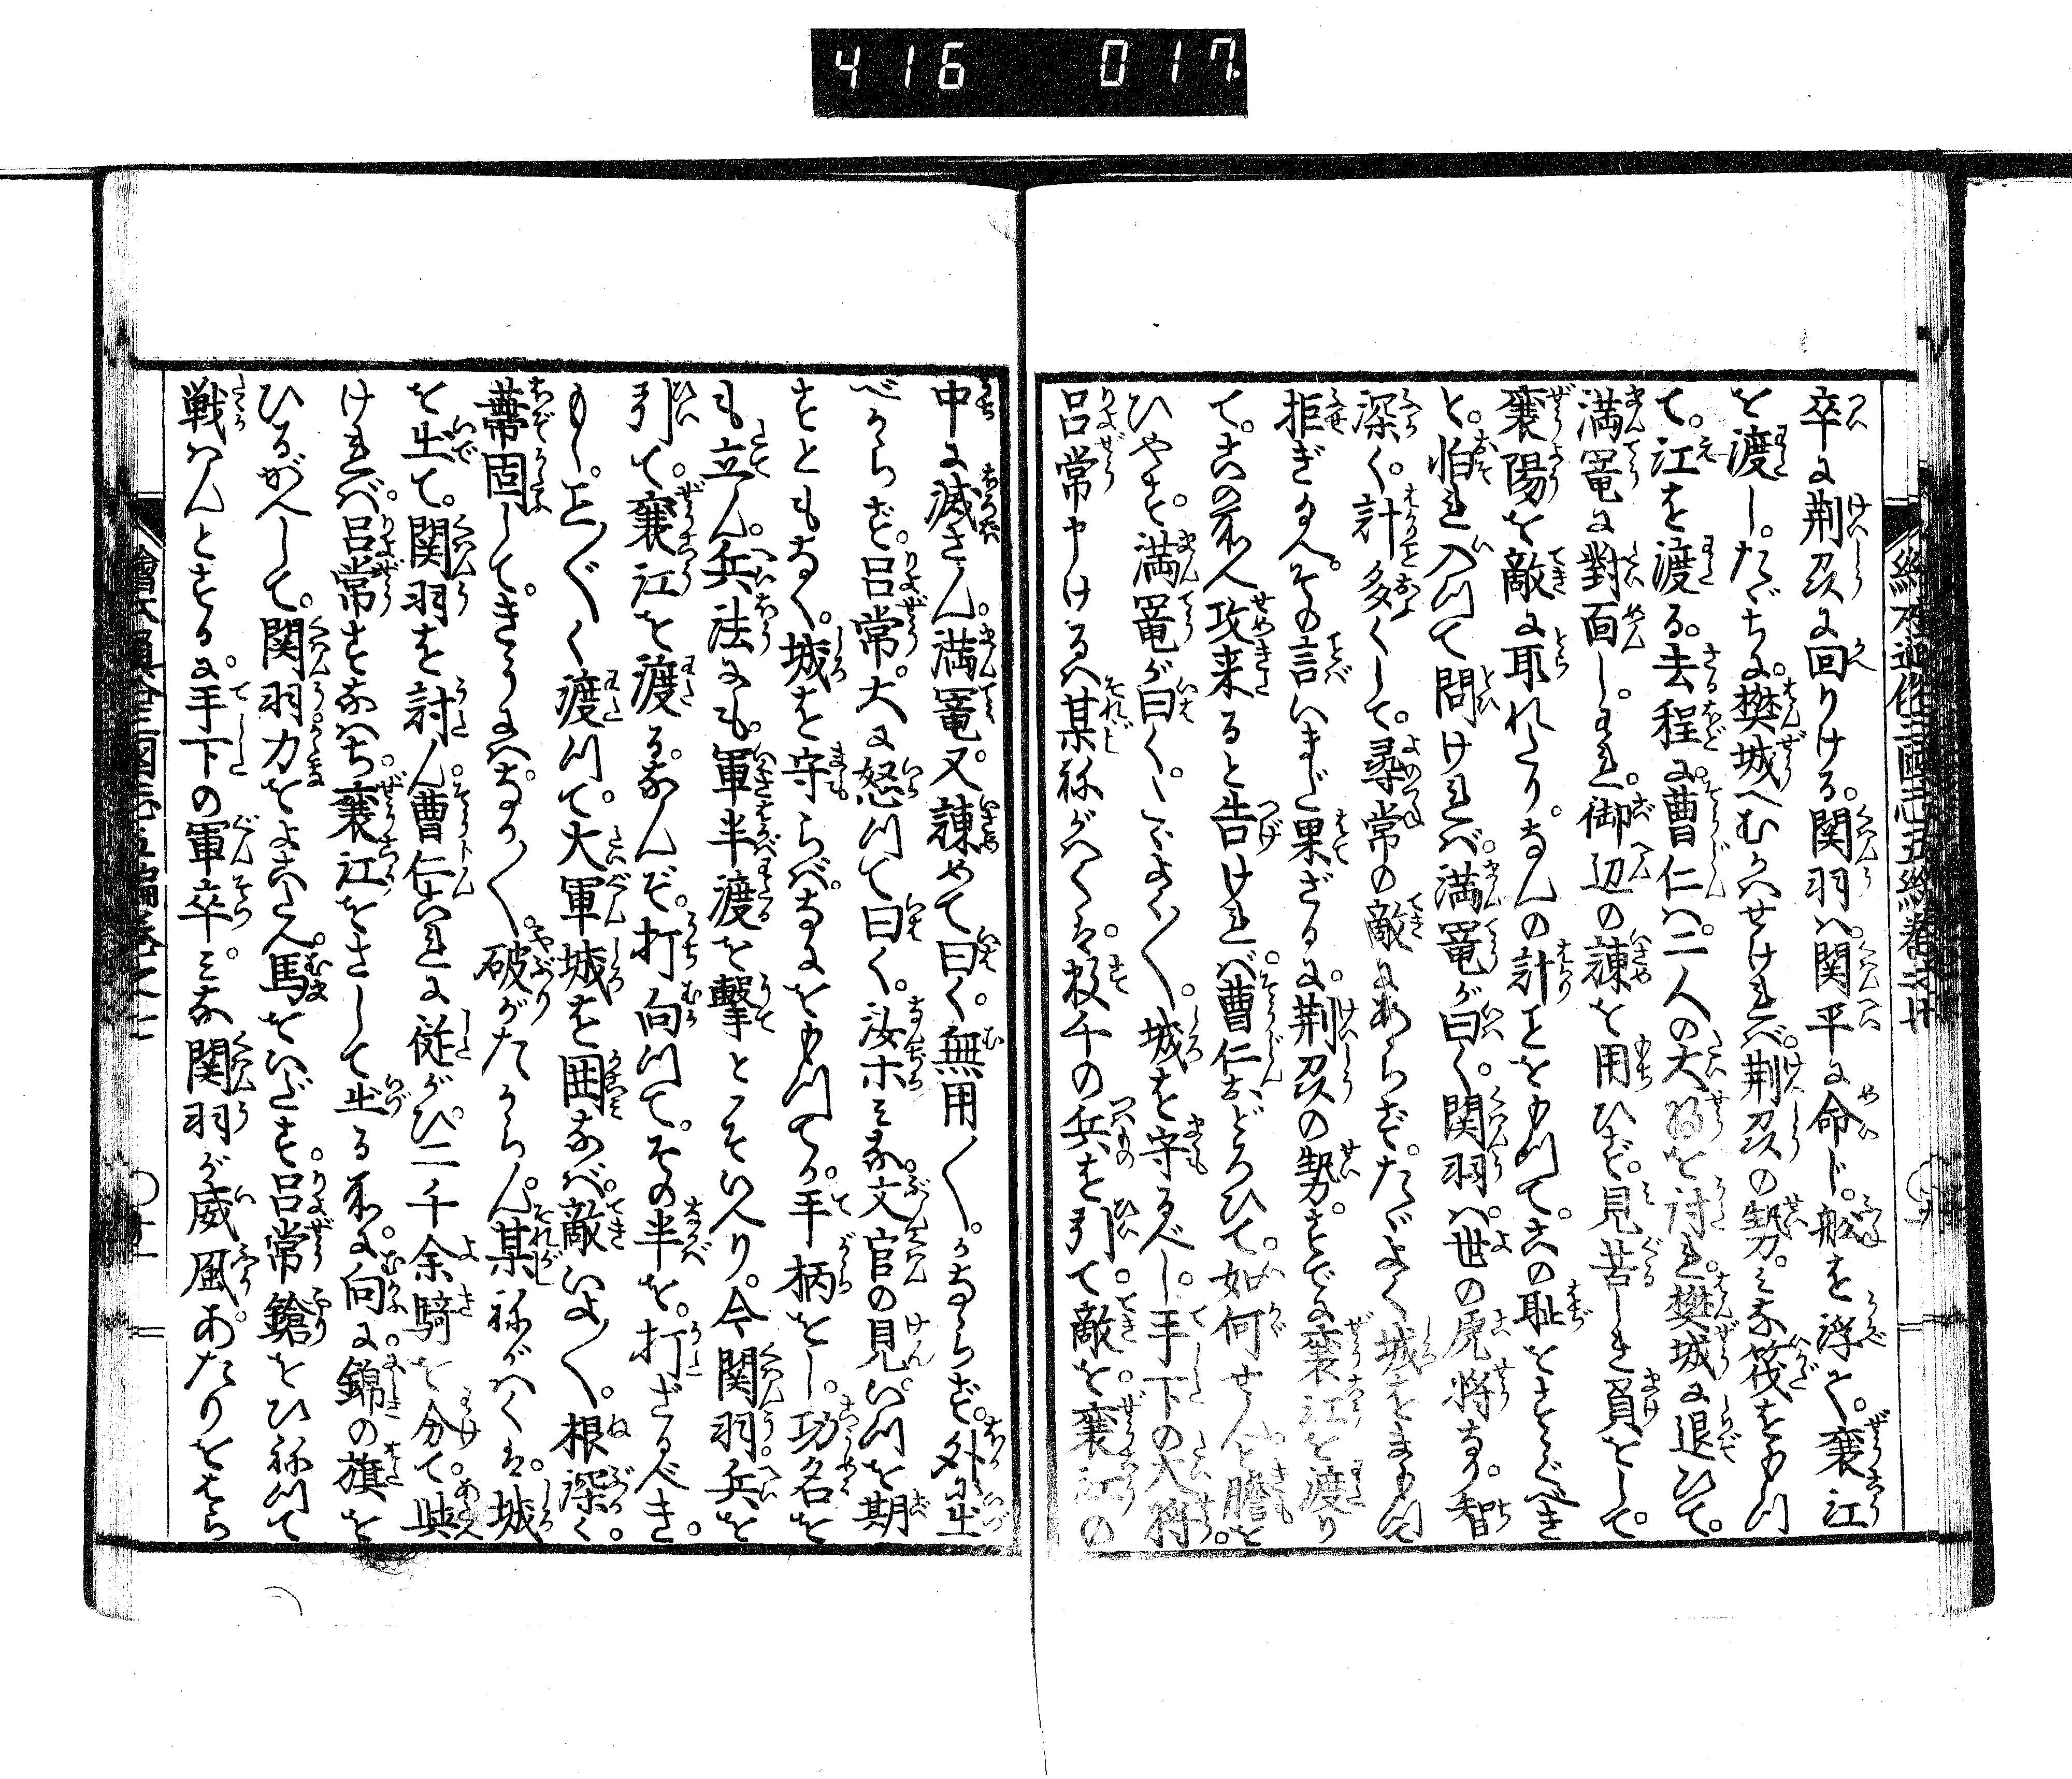 416 017
卒に荆刕に回りける。関羽ハ。関平に命じ。舩を浮そ。襄江
を渡し。たゞちに。樊城へむかハせけれバ。荆刕の勢。ミな筏をもつ
て。江を渡る。去程に。曹仁ハ。二人の大将を討れ。樊城に退ひて。
満寵に對面し。われ。御辺の諫を用ひず。見苦しき負をして。
襄陽を敵に取れたり。なんの計ことをもつて。この恥をすゝぐべき
と。怕れ入つて問けれバ。満寵が曰く。関羽ハ世の虎将なり。智
深く。計多くして。尋常の敵にあらず。たゞよく城をまもつて
拒ぎ玉へ。その言いまだ果ざるに。荆刕の勢。すでに襄江を渡り
て。この所へ攻来ると告けれバ。曹仁おどろひて。如何せんと膽を
ひやす。満寵が曰く。たゞよく〳〵。城を守るべし。手下の大将。
呂常申けるハ。某ねがハくハ。数千の兵を引て。敵を襄江の
中に滅さん。満寵。又諫めて曰く。無用〳〵。かならず。外に出
べからず。呂常。大に怒つて曰く。汝ホミな文官の見。いつを期
すともなく。城を守らバ。なにをもつてか。手柄をし。功名を
も立ん。兵法にも。軍半渡を撃とこそいへり。今関羽。兵を
引て。襄江を渡る。なんぞ。打向つて。その半を。打ざるべき。
もし。こと〴〵く渡つて。大軍城を囲なバ。敵いよ〳〵。根深く
蔕固して。きうにハ。なか〳〵。破がたからん。某ねがハくハ。城
を出て。関羽を討ん。曹仁これに従がひ。二千余騎を分て。與へ
けれバ。呂常すなハち。襄江をさして出る所に。向に。錦の旗を
ひるがへして。関羽。刀をよこたへ。馬をいだす。呂常鎗をひねつて
戦ハんとするに。手下の軍卒。ミな関羽が威風。あたりをはら